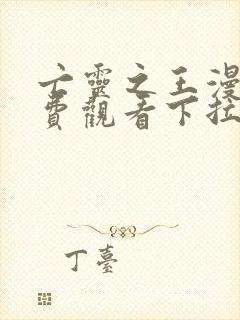 亡靈之王漫
費觀看下拉
丁臺